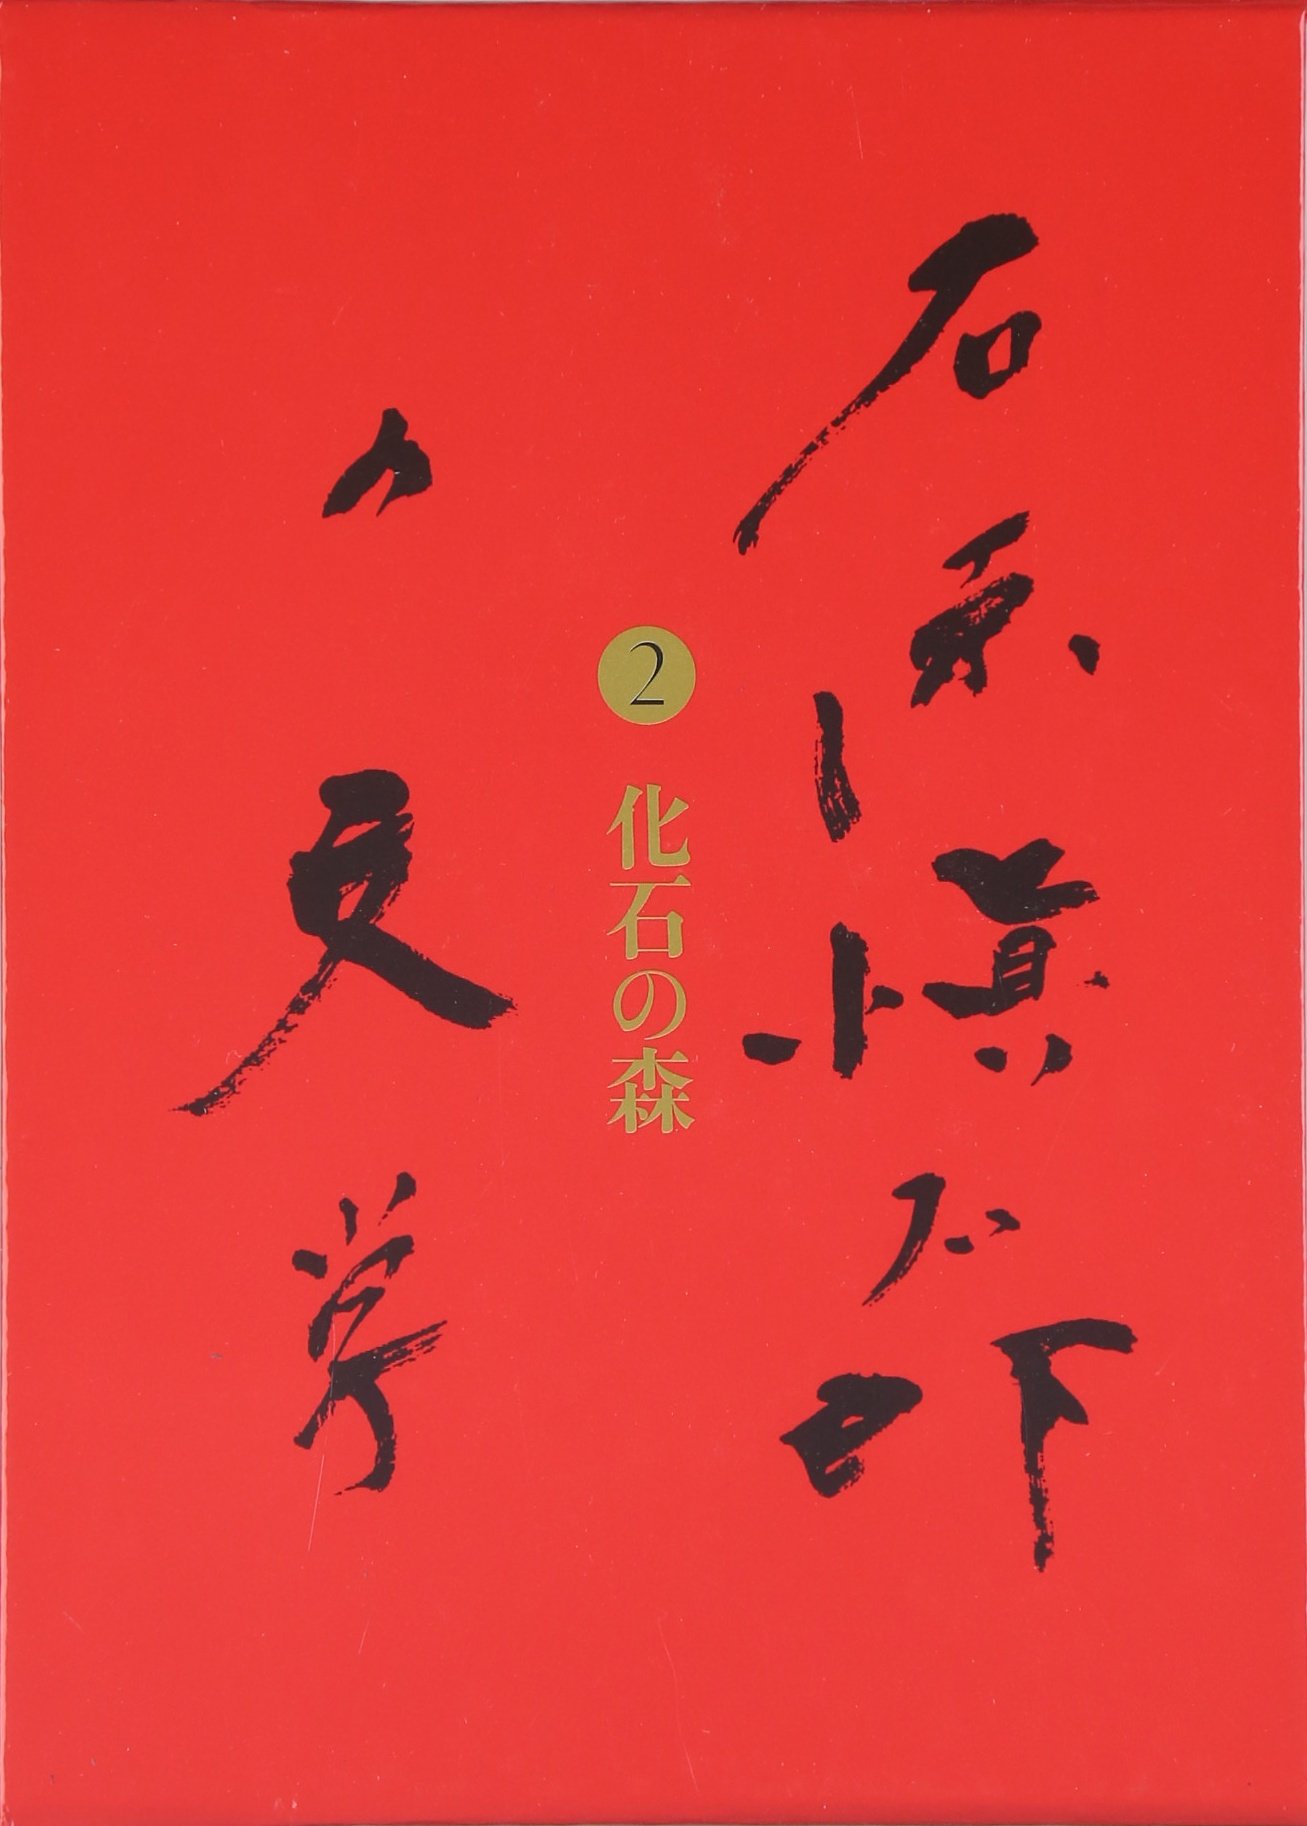 石原愼太郎
の文学
2
化石の森